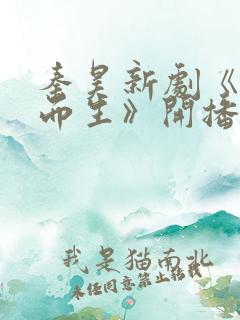 秦昊新劇《
而生》開播
我是猫南北
未经同意禁止转载